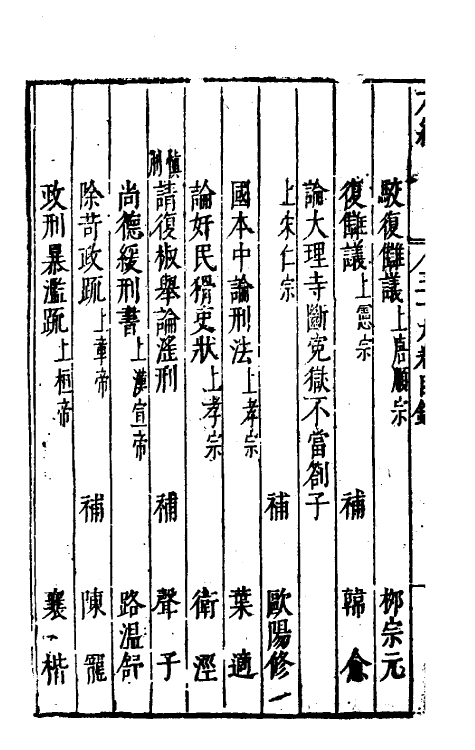 駁復讎議上唐順宗 柳宗元
復讎議上憲宗 補 韓愈
論大理寺斷冤獄不當劄子
上宋仁宗 補 歐陽修
國本中論刑法上孝宗 葉適
論奸民猾吏狀上孝宗 衛涇
慎刑
請復椒舉論淫刑 補 聲子
尚德緩刑書上漢宣帝 路溫舒
除苛政疏上章帝 補 陳寵
政刑暴濫疏上桓帝 襄楷